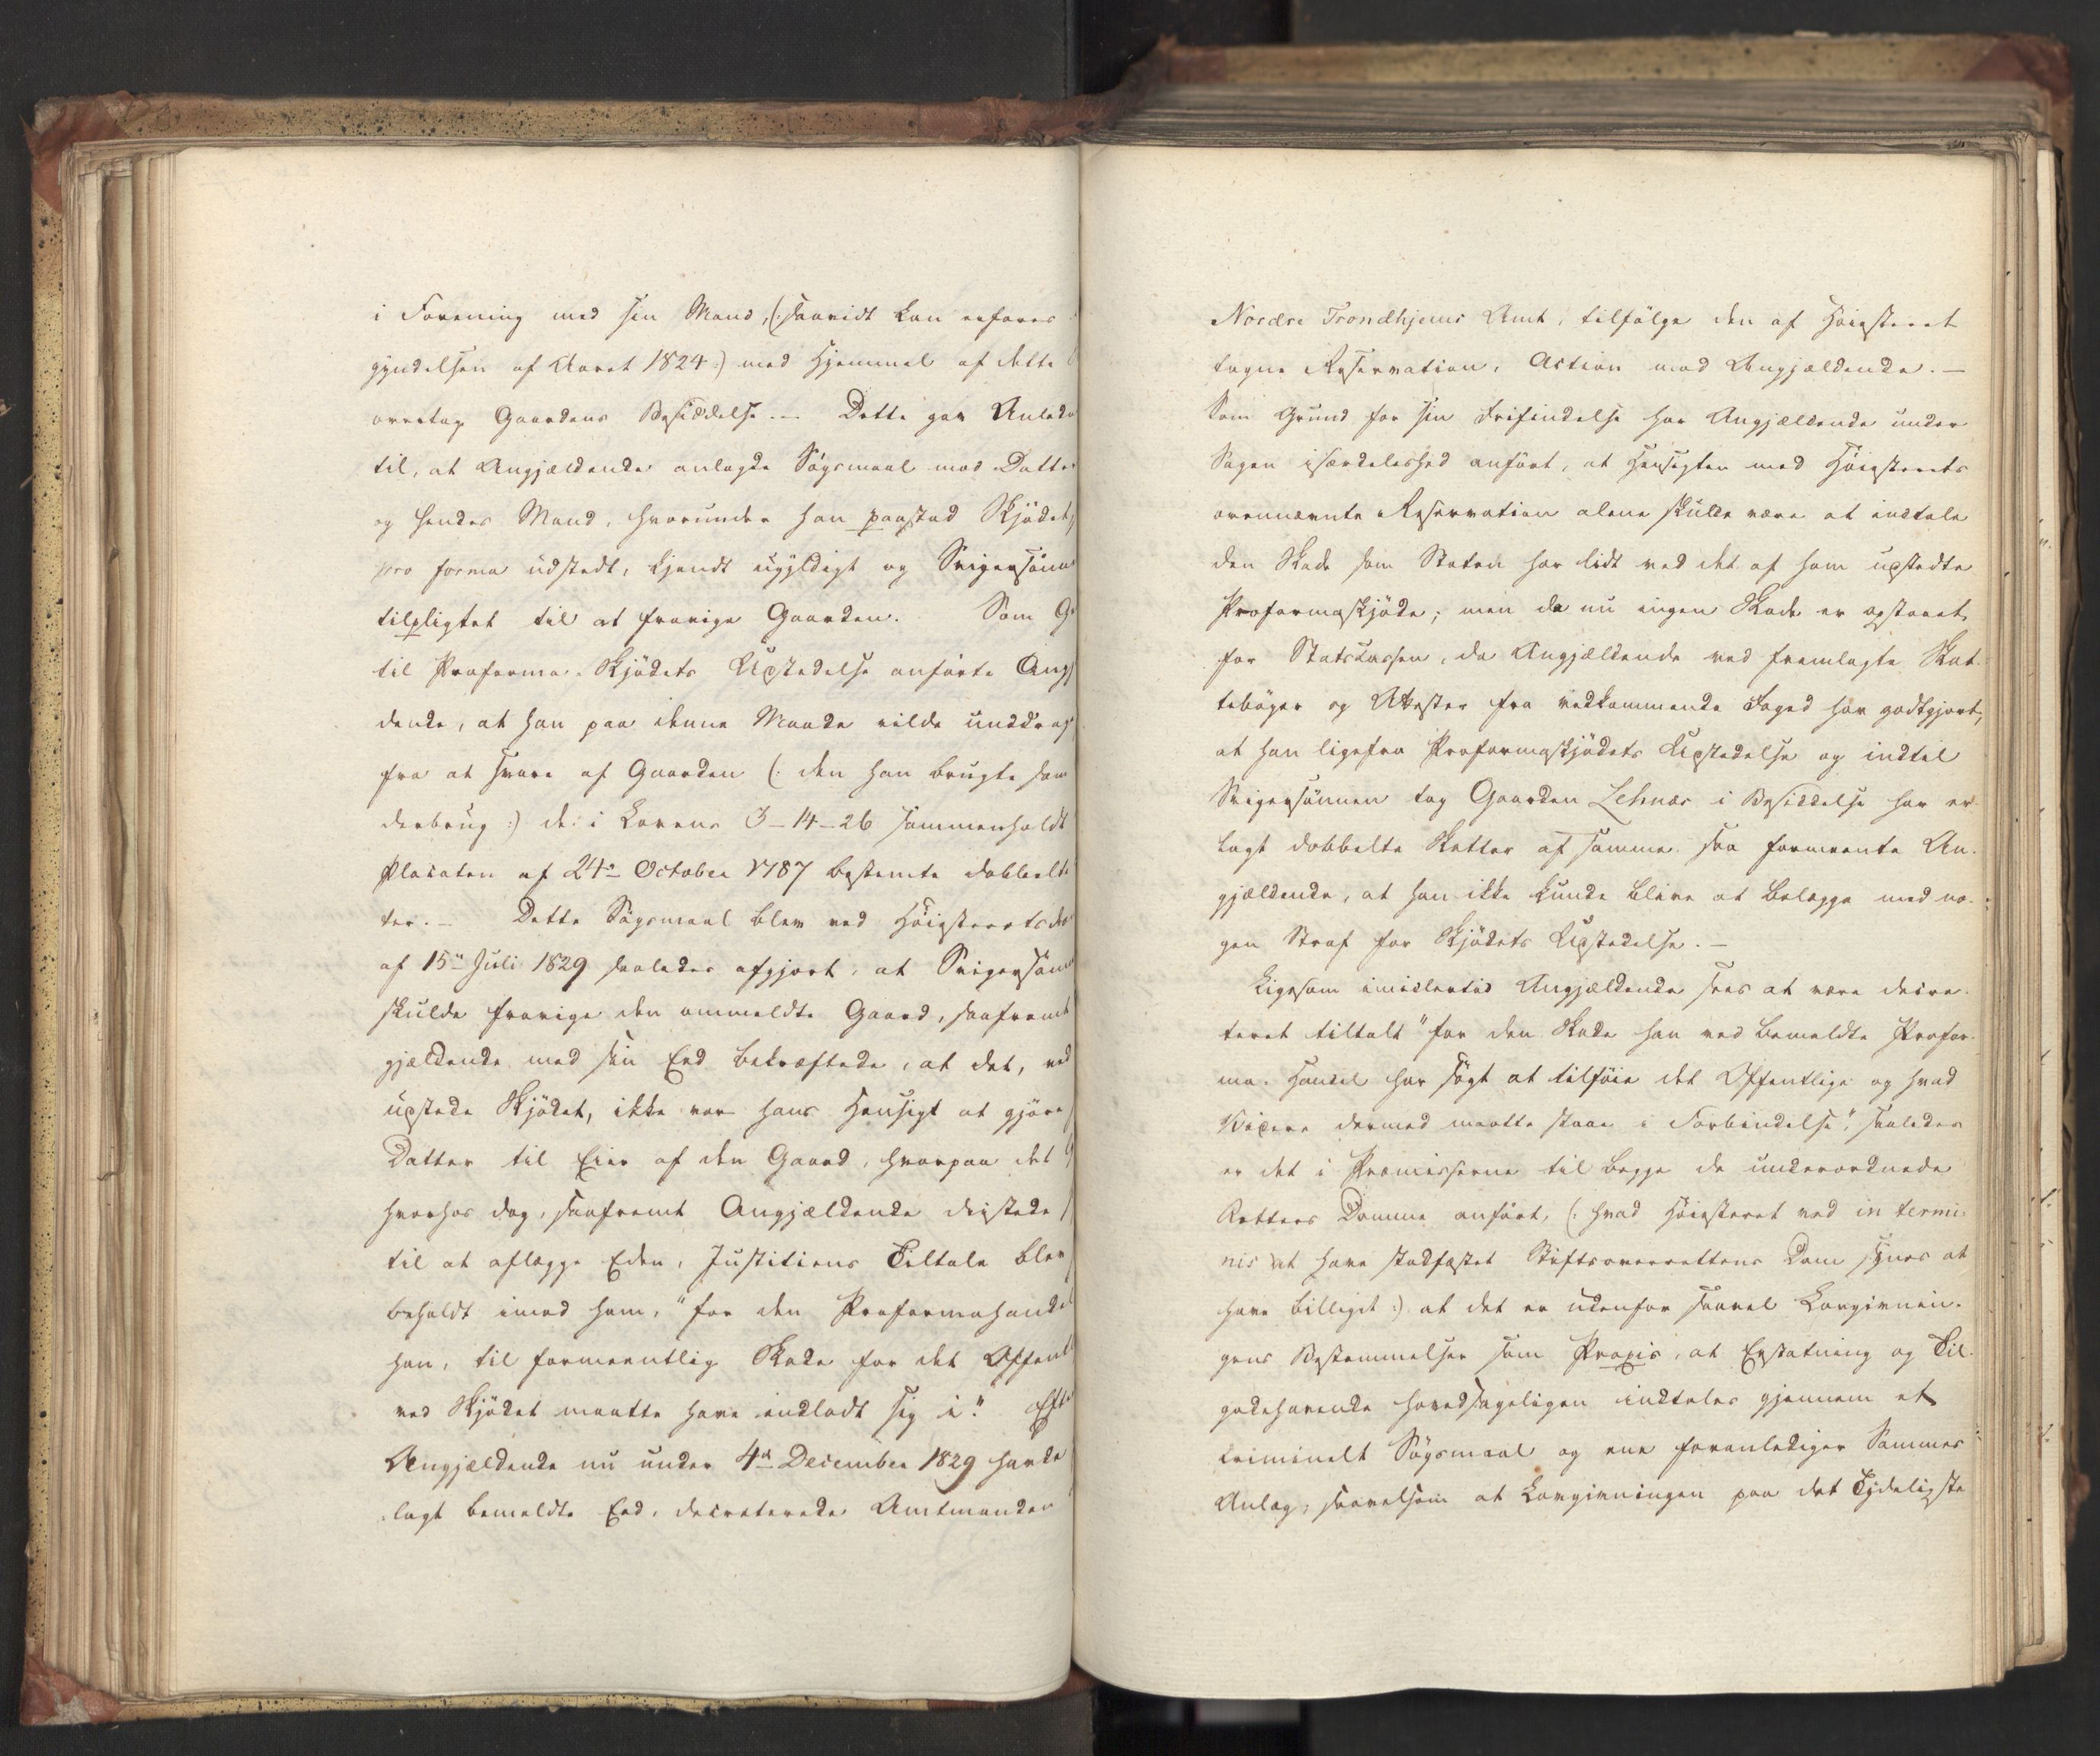 i Forening med sin Mand, (: saavidt kan erfares
gyndelsen af Aaret 1824 :) med Hjemmel af dette
overtog Gaardens Besiddelse. — Dette gav Anledn
til, at Angjældende anlagde Søgsmaal mod Datte
og hendes Mand, hvorunder han paastod Skjødet,
pro forma udstedt, kjendt ugyldigt og Svigersønn
tilpligtet til at fravige Gaarden. Som G
til Proforma-Skjødets Udstedelse anførte Angj
dende, at han paa denne Maade vilde unddrage
fra at svare af Gaarden (: den han brugte som
derbrug :) de i Lovens 3-14-26 sammenholdt
Placaten af 24de October 1787 bestemte dobbelte
ter. — Dette Søgsmaal blev ved Høiesteretsdo
af 15de Juli 1829 saaledes afgjort, at Svigersønn
skulde fravige den ommeldte Gaard, saafremt
gjældende med sin Eed bekræftede, at det, ved
udstede Skjødet, ikke var hans Hensigt at gjøre
Datter til Eier af den Gaard, hvorpaa det
hvorhos dog, saafremt Angjældende dristede
til at aflægge Eden, Justitiens Tiltale blev
beholdt imod ham, "for den Proformahandel
han, til formeentlig Skade for det Offent
ved Skjødet maatte have indladt sig i." Efte
Angjældende nu under 4de December 1829 havde
lagt bemeldte Eed, decreterede Amtmanden
Nordre Trondhjems Amt, tilfølge den af Høiesteret
tagne Reservation, Action mod Angjældende. —
Som Grund for sin Frifindelse har Angjældende under
Sagen isærdeleshed anført, at Hensigten med Høiesterets
ovennævnte Reservation alene skulde være at indtale
den Skade som Staten har lidt ved det af ham udstedte
Proformaskjøde; men da nu ingen Skade er opstaaet
for Statskassen, da Angjældende ved fremlagte Skat-
tebøger og Attester fra vedkommende Foged har godtgjort,
at han ligefra Proformaskjødets Udstedelse og indtil
Svigersønnen tog Gaarden Lehnæs i Besiddelse har er-
lagt dobbelte Skatter af samme, saa formeente An-
gjældende, at han ikke kunde blive at belægge med no-
gen Straf for Skjødets Udstedelse. —
Ligesom imidlertid Angjældende sees at være decre-
teret tiltalt "for den Skade han ved bemeldte Profor-
ma-Handel har søgt at tilføie det Offentlige og hvad
Videre dermed maatte staae i Forbindelse", saaledes
er det i Præmisserne til begge de underordnede
Retters Domme anført, (: hvad Høiesteret ved in termi-
nis at have stadfæstet Stiftsoverrettens Dom synes at
have billiget :) at det er udenfor saavel Lovgivnin-
gens Bestemmelser som Praxis, at Erstatning og Til-
godehavende hovedsageligen indtales gjennem et
criminelt Søgsmaal og ene foranlediger Sammes
Anlæg, saavelsom at Lovgivningen paa det Tydeligste